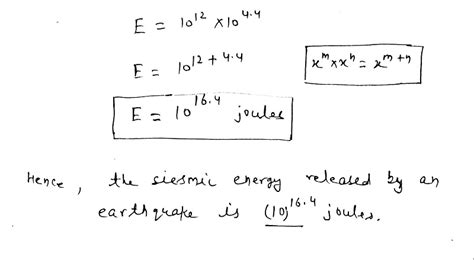 E = 10¹² × 10⁴·⁴
E = 10¹² ⁺ ⁴·⁴
xᵐ × xⁿ = xᵐ⁺ⁿ
E = 10¹⁶·⁴ joules
Hence, the siesmic energy released by an
earthquake is (10)¹⁶·⁴ joules.